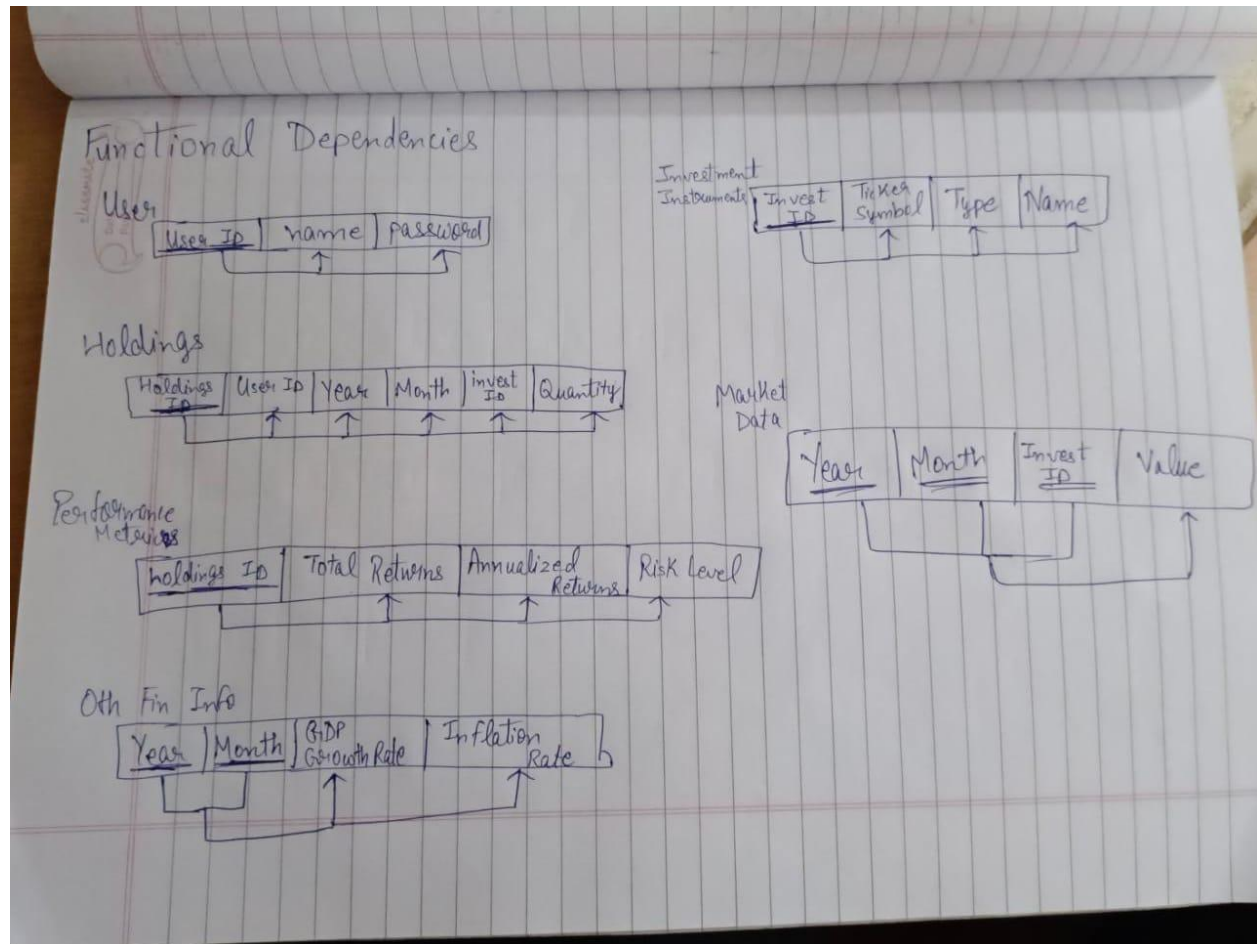 Functional Dependencies
classmate
User
User ID name password
Holdings
Holdings ID User ID Year Month invest ID Quantity
Performance
Metrics
holdings ID Total Returns Annualized Returns Risk Level
Oth Fin Info
Year Month GDP Growth Rate Inflation Rate
Investment
Instruments
Invest ID Ticker Symbol Type Name
Market
Data
Year Month Invest ID Value